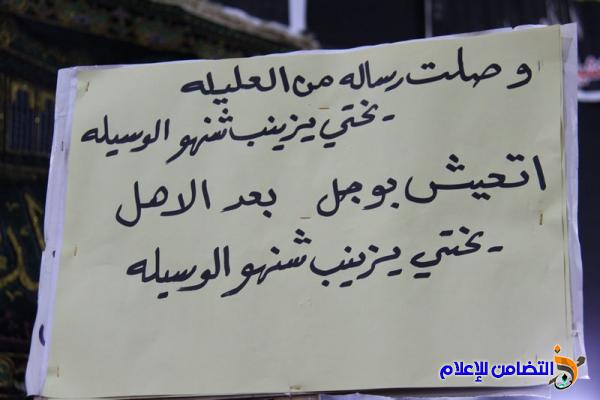 وصلت رساله من العليله
يختي يزينب شنهو الوسيله
اتعيش بوجل بعد الاهل
يختي يزينب شنهو الوسيله
التضامن للإعلام